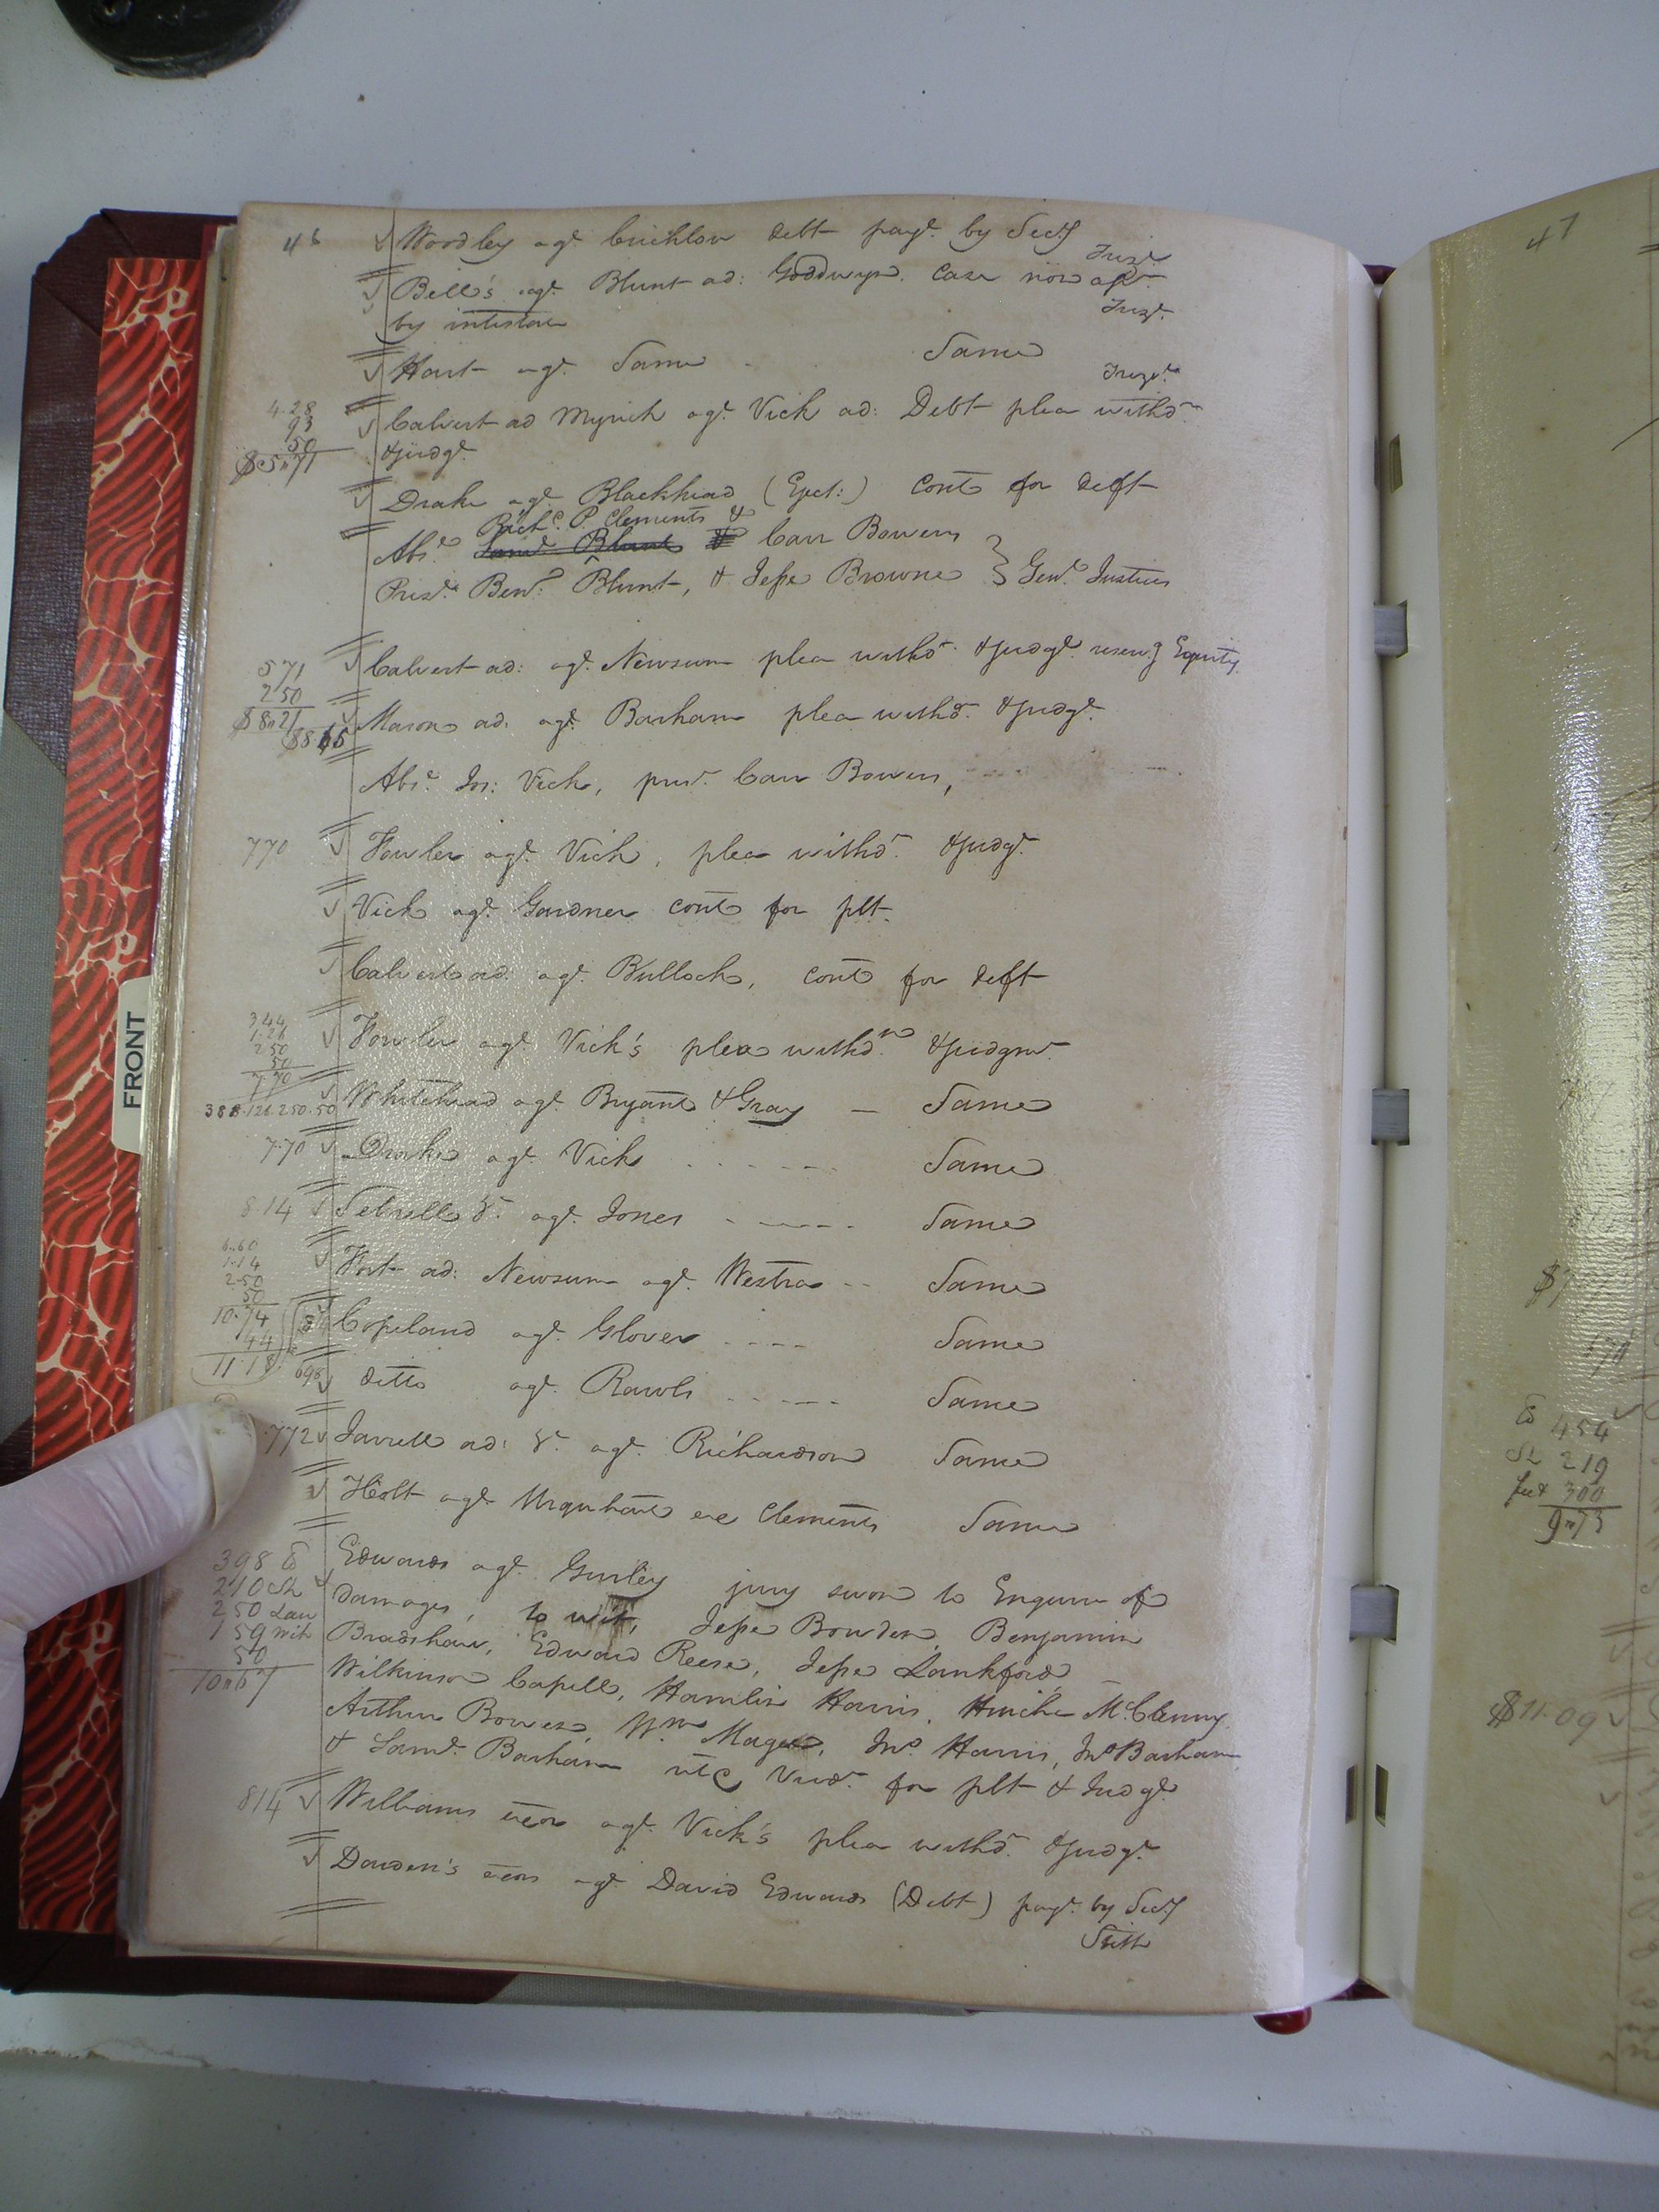 46
Woodley agt. Crichlow debt payt. by Secy
Bell's agt. Blunt ad: Goodwyn. Case non asst.
by intestate
Hart agt. Same Same
Calvert ad Myrick agt. Vick ad: Debt plea withd
4.28
93
50
$5"71
&judgt.
Drake agt. Blackhead (Eject:) Cont for deft
Richd. P. Clements &
Abst. Saml. Blunt & Carr Bowers
Prest. Benn. Blunt, & Jesse Browne } Gent. Justices
571
250
$8"21
Calvert ad: agt. Newsum plea withd. &judgt. reservg Equity
Mason ad. agt. Barham plea withd. &judgt.
Abst. Jos: Vick, prest. Carr Bowers,
770 Fowler agt. Vick, plea withd. &judgt.
Vick agt. Gardner cont for plt.
Calvert ad. agt. Bulloch, cont for deft
344
1.26
250
50
7.70
Fowler agt. Vick's plea withdn. &judgmt.
388.126.250.50 Whitehead agt. Bryant & Gray — Same
7.70 Drake agt. Vick Same
8.14 Sebrell &c. agt. Jones Same
6.60
1.14
2.50
50
10.74
44
11.18
Fort ad: Newsum agt. Westra Same
Copeland agt. Glover Same
698 ditto agt. Rawls Same
772 Jarrell ad: &c. agt. Richardson Same
Holt agt. Urquhart exe Clements Same
398 Co
210 Sh
250 Law
159 Wit
50
10"67
Edwards agt. Gurley jury sworn to Enquire of
damages, to wit, Jesse Bowden, Benjamin
Bradshaw, Edward Reese, Jesse Lankford,
Wilkinson Capell, Hamlin Harris, McClenny
Arthur Bowen, Wm Magee, Jno. Harris, Jno Barham
& Saml. Barham utc Verdt. for plt & Judgt.
814 Williams exor agt. Vick's plea withd. &judgt.
Darden's exors agt. David Edwards (Debt) payt. by Secy
47
FRONT
$7
Co 454
Sh 219
feet 300
9"73
$11.09